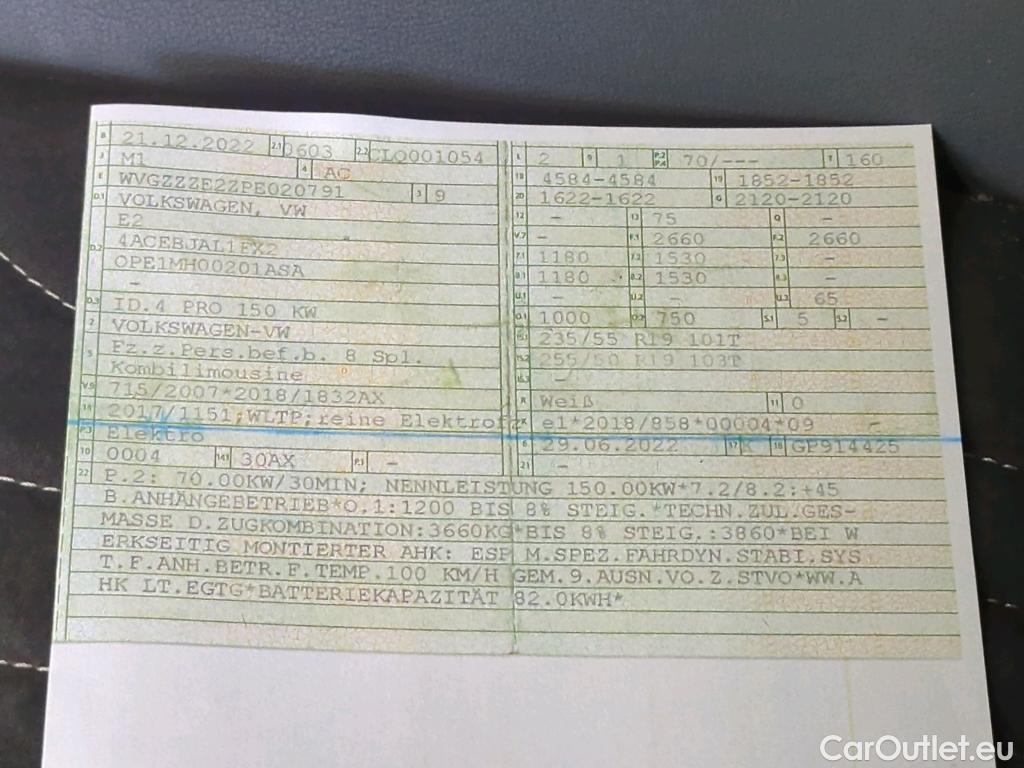 B 21.12.2022 2.1 0603 2.2 CLQ001054
J M1 4 AC
E WVGZZZE2ZPE020791 3 9
D.1 VOLKSWAGEN, VW
E2
D.2 4ACEBJAL1FX2
OPE1MH00201ASA
-
D.3 ID.4 PRO 150 KW
2 VOLKSWAGEN-VW
5 Fz.z.Pers.bef.b. 8 Spl.
Kombilimousine
V.9 715/2007*2018/1832AX
14 2017/1151;WLTP;reine Elektrofz
P.3 Elektro
10 0004 14.1 30AX P.1 -
L 2 9 1 P.2 P.4 70/--- T 160
18 4584-4584 19 1852-1852
20 1622-1622 G 2120-2120
12 - 13 75 Q -
V.7 - F.1 2660 F.2 2660
7.1 1180 7.2 1530 7.3 -
8.1 1180 8.2 1530 8.3 -
U.1 - U.2 - U.3 65
O.1 1000 O.2 750 S.1 5 S.2 -
15.1 235/55 R19 101T
15.2 255/50 R19 103T
15.3 -
R Weiß 11 0
K e1*2018/858*00004*09 -
6 29.06.2022 17 K 16 GP914425
21 -
22 P.2: 70.00KW/30MIN; NENNLEISTUNG 150.00KW*7.2/8.2:+45
B.ANHÄNGEBETRIEB*O.1:1200 BIS 8% STEIG.*TECHN.ZUL.GES-
MASSE D.ZUGKOMBINATION:3660KG*BIS 8% STEIG.:3860*BEI W
ERKSEITIG MONTIERTER AHK: ESP M.SPEZ.FAHRDYN.STABI.SYS
T.F.ANH.BETR.F.TEMP.100 KM/H GEM.9.AUSN.VO.Z.STVO*WW.A
HK LT.EGTG*BATTERIEKAPAZITÄT 82.0KWH*
CarOutlet.eu